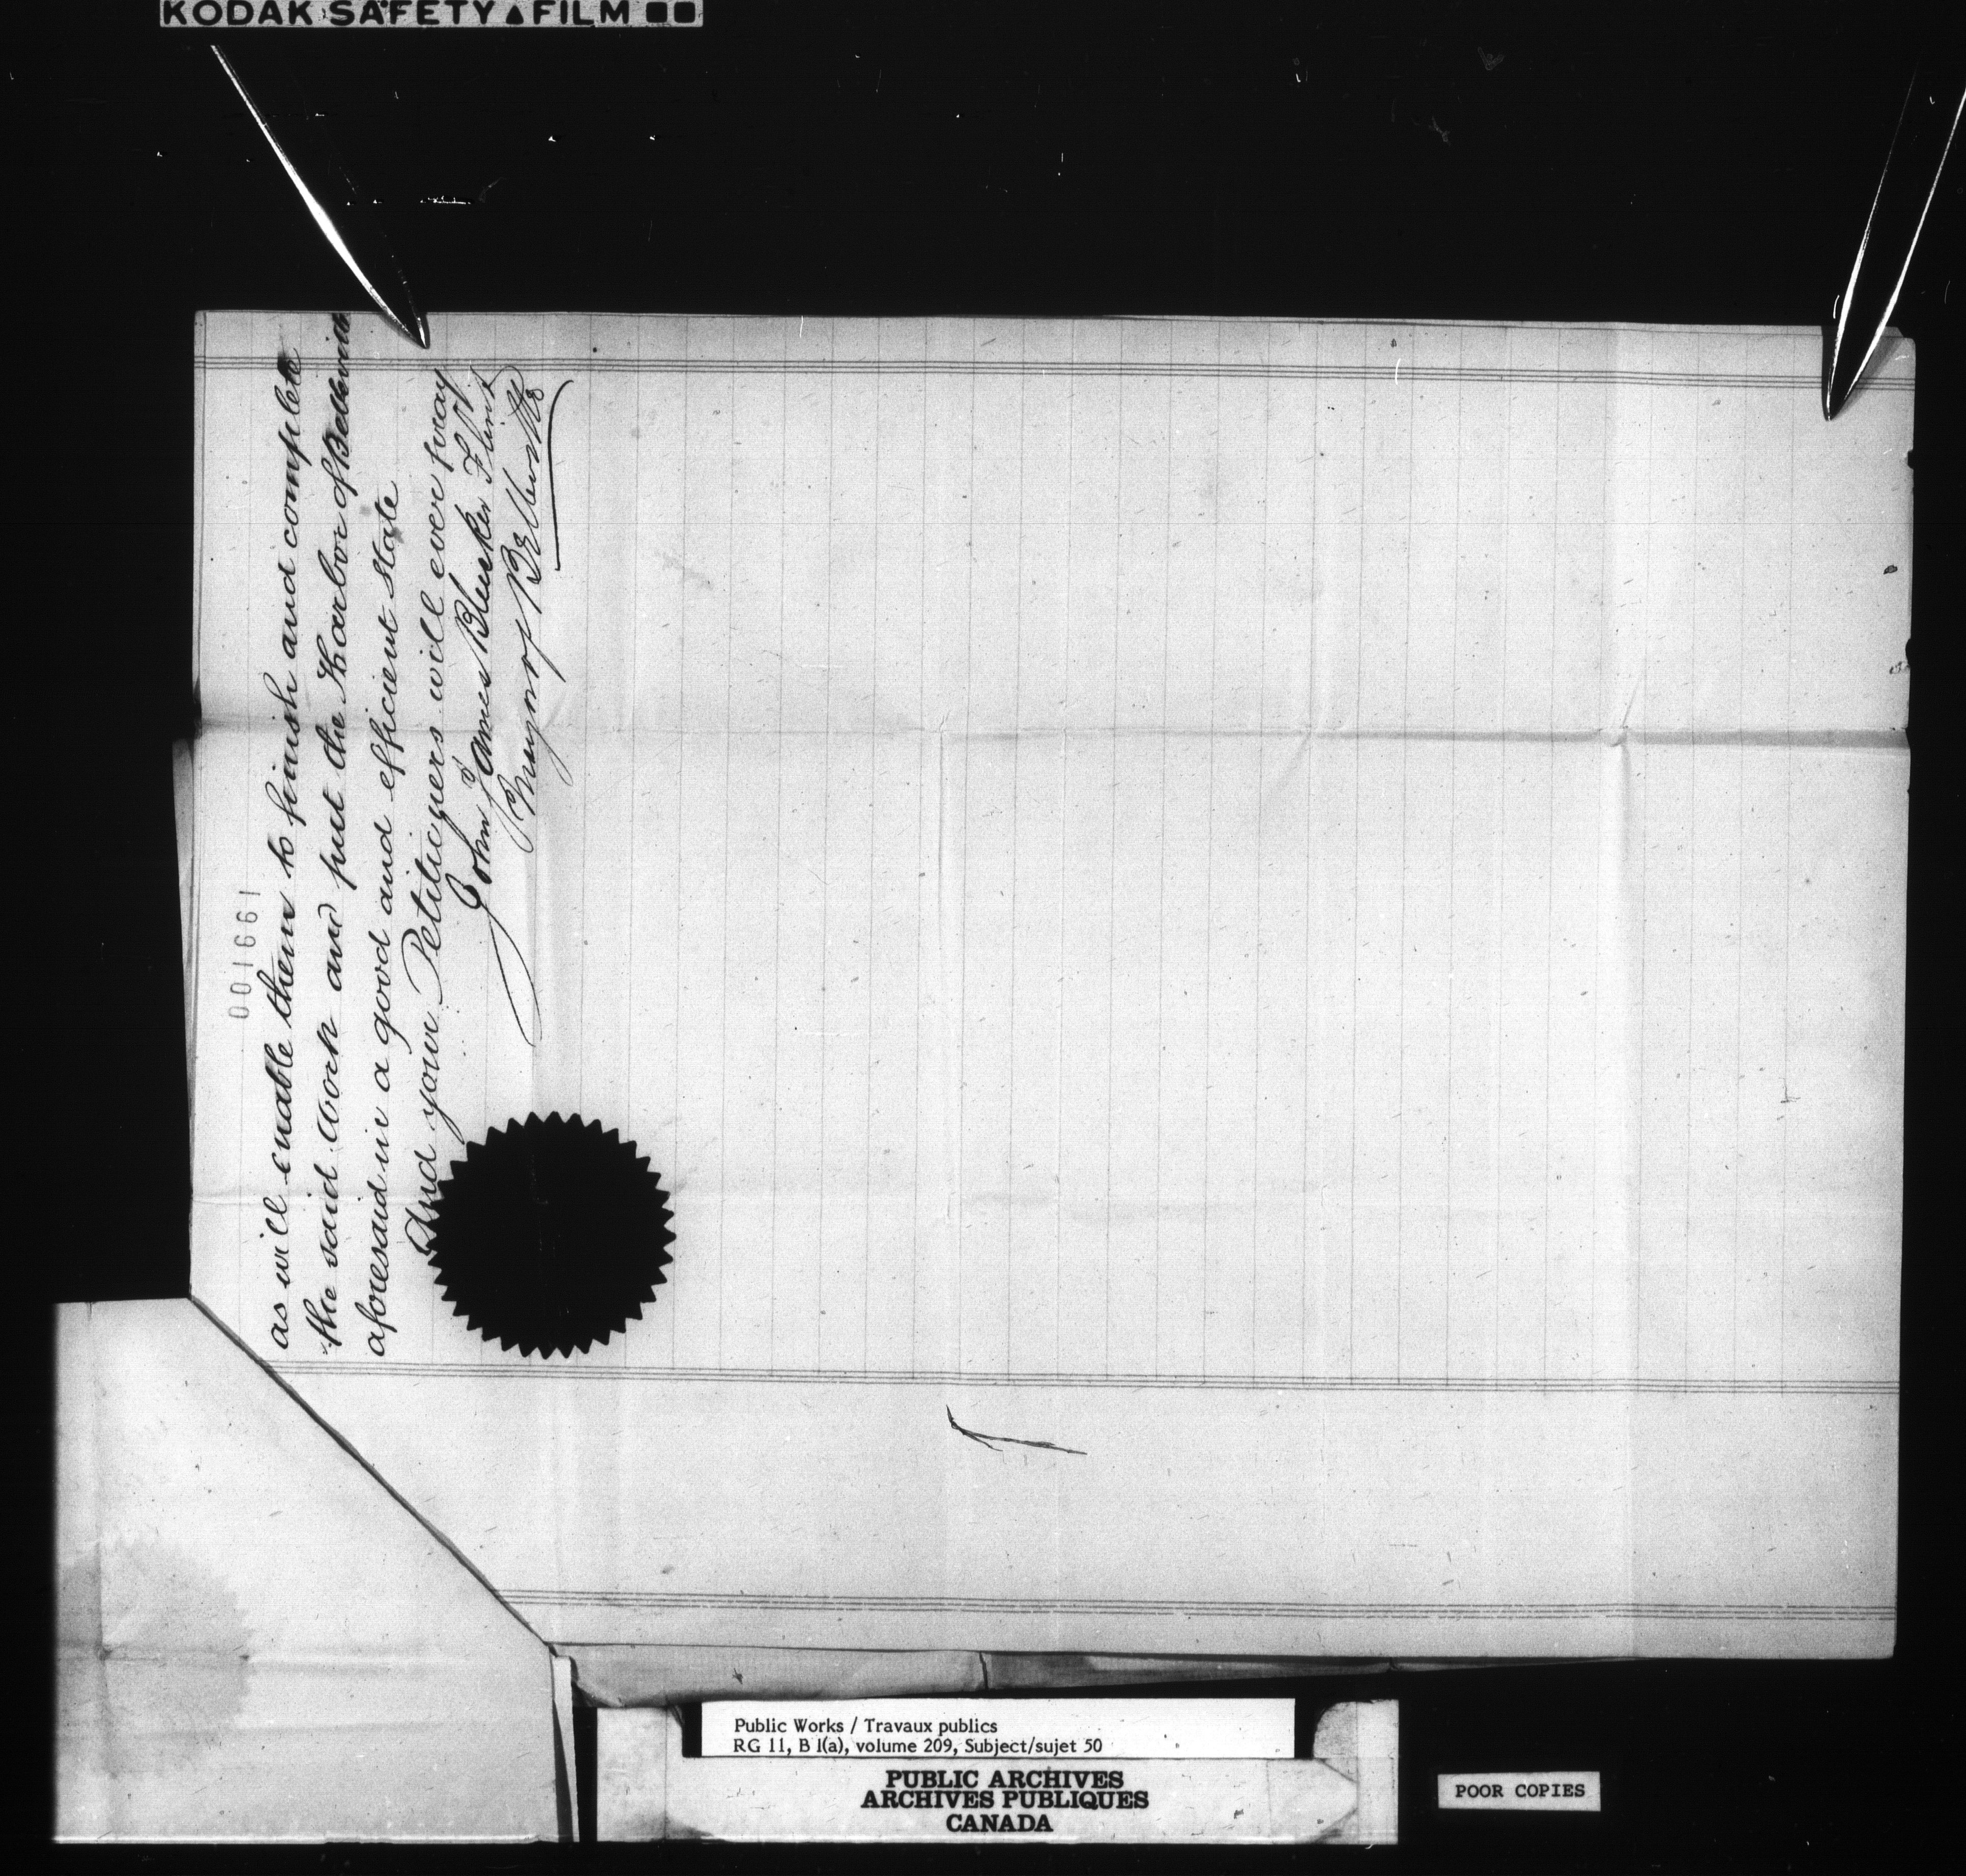 KODAK SAFETY FILM
001661
as will enable them to finish and complete
the said Work and put the Harbor of Belleville
aforesaid in a good and efficient state
And your Petitioners will ever pray
John James Bleeker Flint
Mayor of Belleville
Public Works / Travaux publics
RG 11, B 1(a), volume 209, Subject/sujet 50
PUBLIC ARCHIVES
ARCHIVES PUBLIQUES
CANADA
POOR COPIES